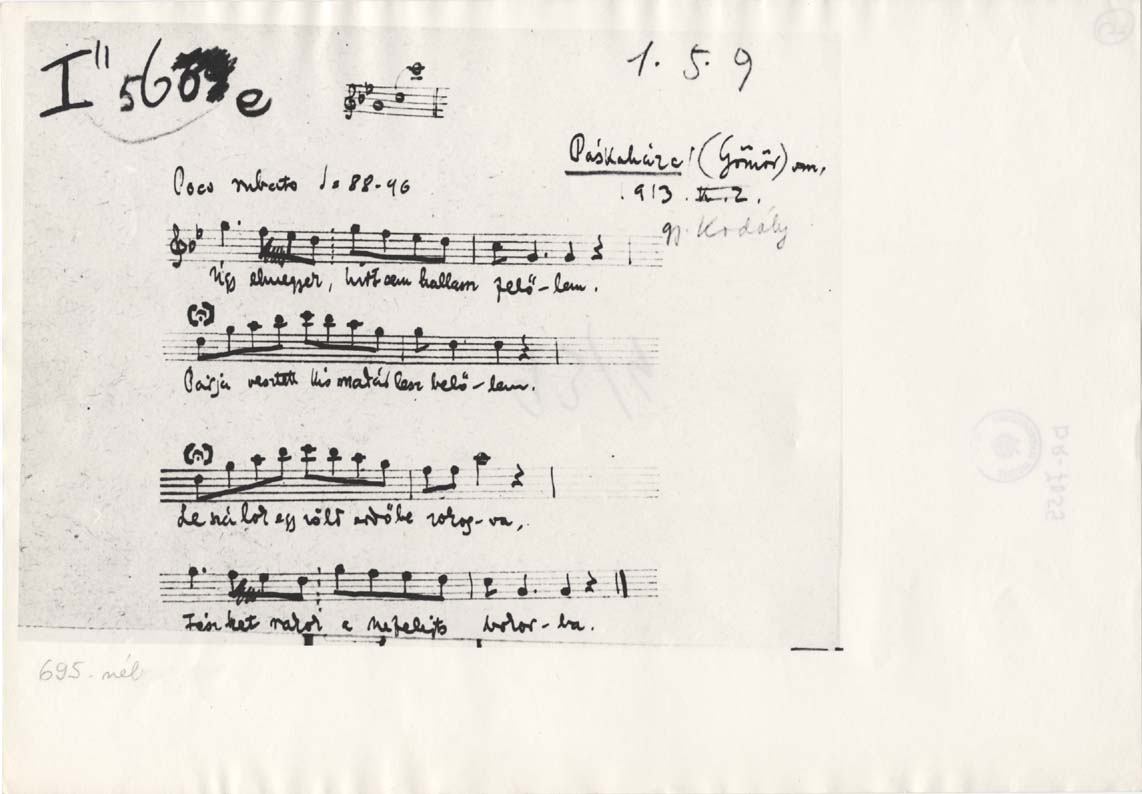 I" 56 e
1. 5. 9
Páskaháza (Gömör) vm.
913.
gy. Kodály
Poco rubato ♩= 88-96
Úgy elmegyek, hirt sem hallasz felő-lem.
Párja vesztett kis madár lesz belő-lem.
Le szálok egy zöld erdőbe zokog-va,
Fészket rakok a nefelejts bokor-ba.
695-nél
DR-7055